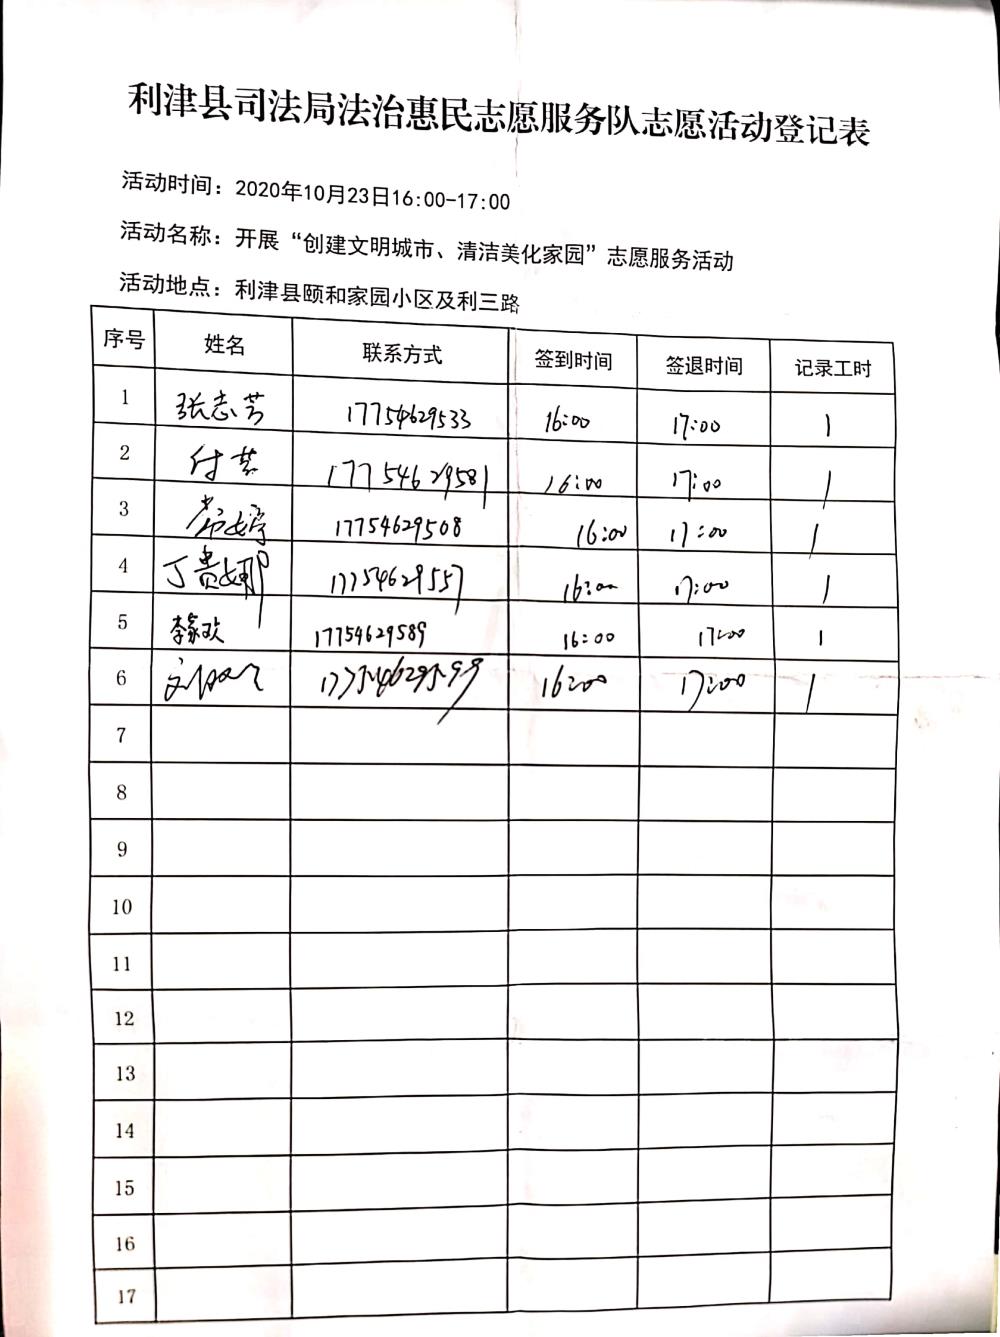 利津县司法局法治惠民志愿服务队志愿活动登记表
活动时间：2020年10月23日16:00-17:00
活动名称：开展“创建文明城市、清洁美化家园”志愿服务活动
活动地点：利津县颐和家园小区及利三路
序号 姓名 联系方式 签到时间 签退时间 记录工时
1 张志芳 17754629533 16:00 17:00 1
2 付 17754629581 16:00 17:00 1
3 常婷 17754629508 16:00 17:00 1
4 丁贵娜 17754629557 16:00 17:00 1
5 李家欢 17754629589 16:00 17:00 1
6 17754629599 16:00 17:00 1
7
8
9
10
11
12
13
14
15
16
17